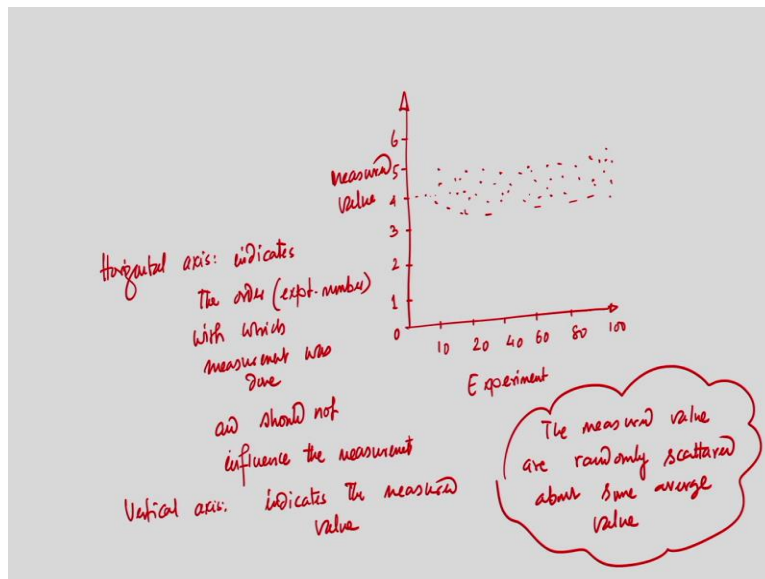 6
measured 5
value 4
3
2
1
0
10 20 40 60 80 100
Experiment
Horizontal axis: indicates
the order (expt. number)
with which
measurement was
done
and should not
influence the measurement
Vertical axis: indicates the measured
value
The measured value
are randomly scattared
about some average
value